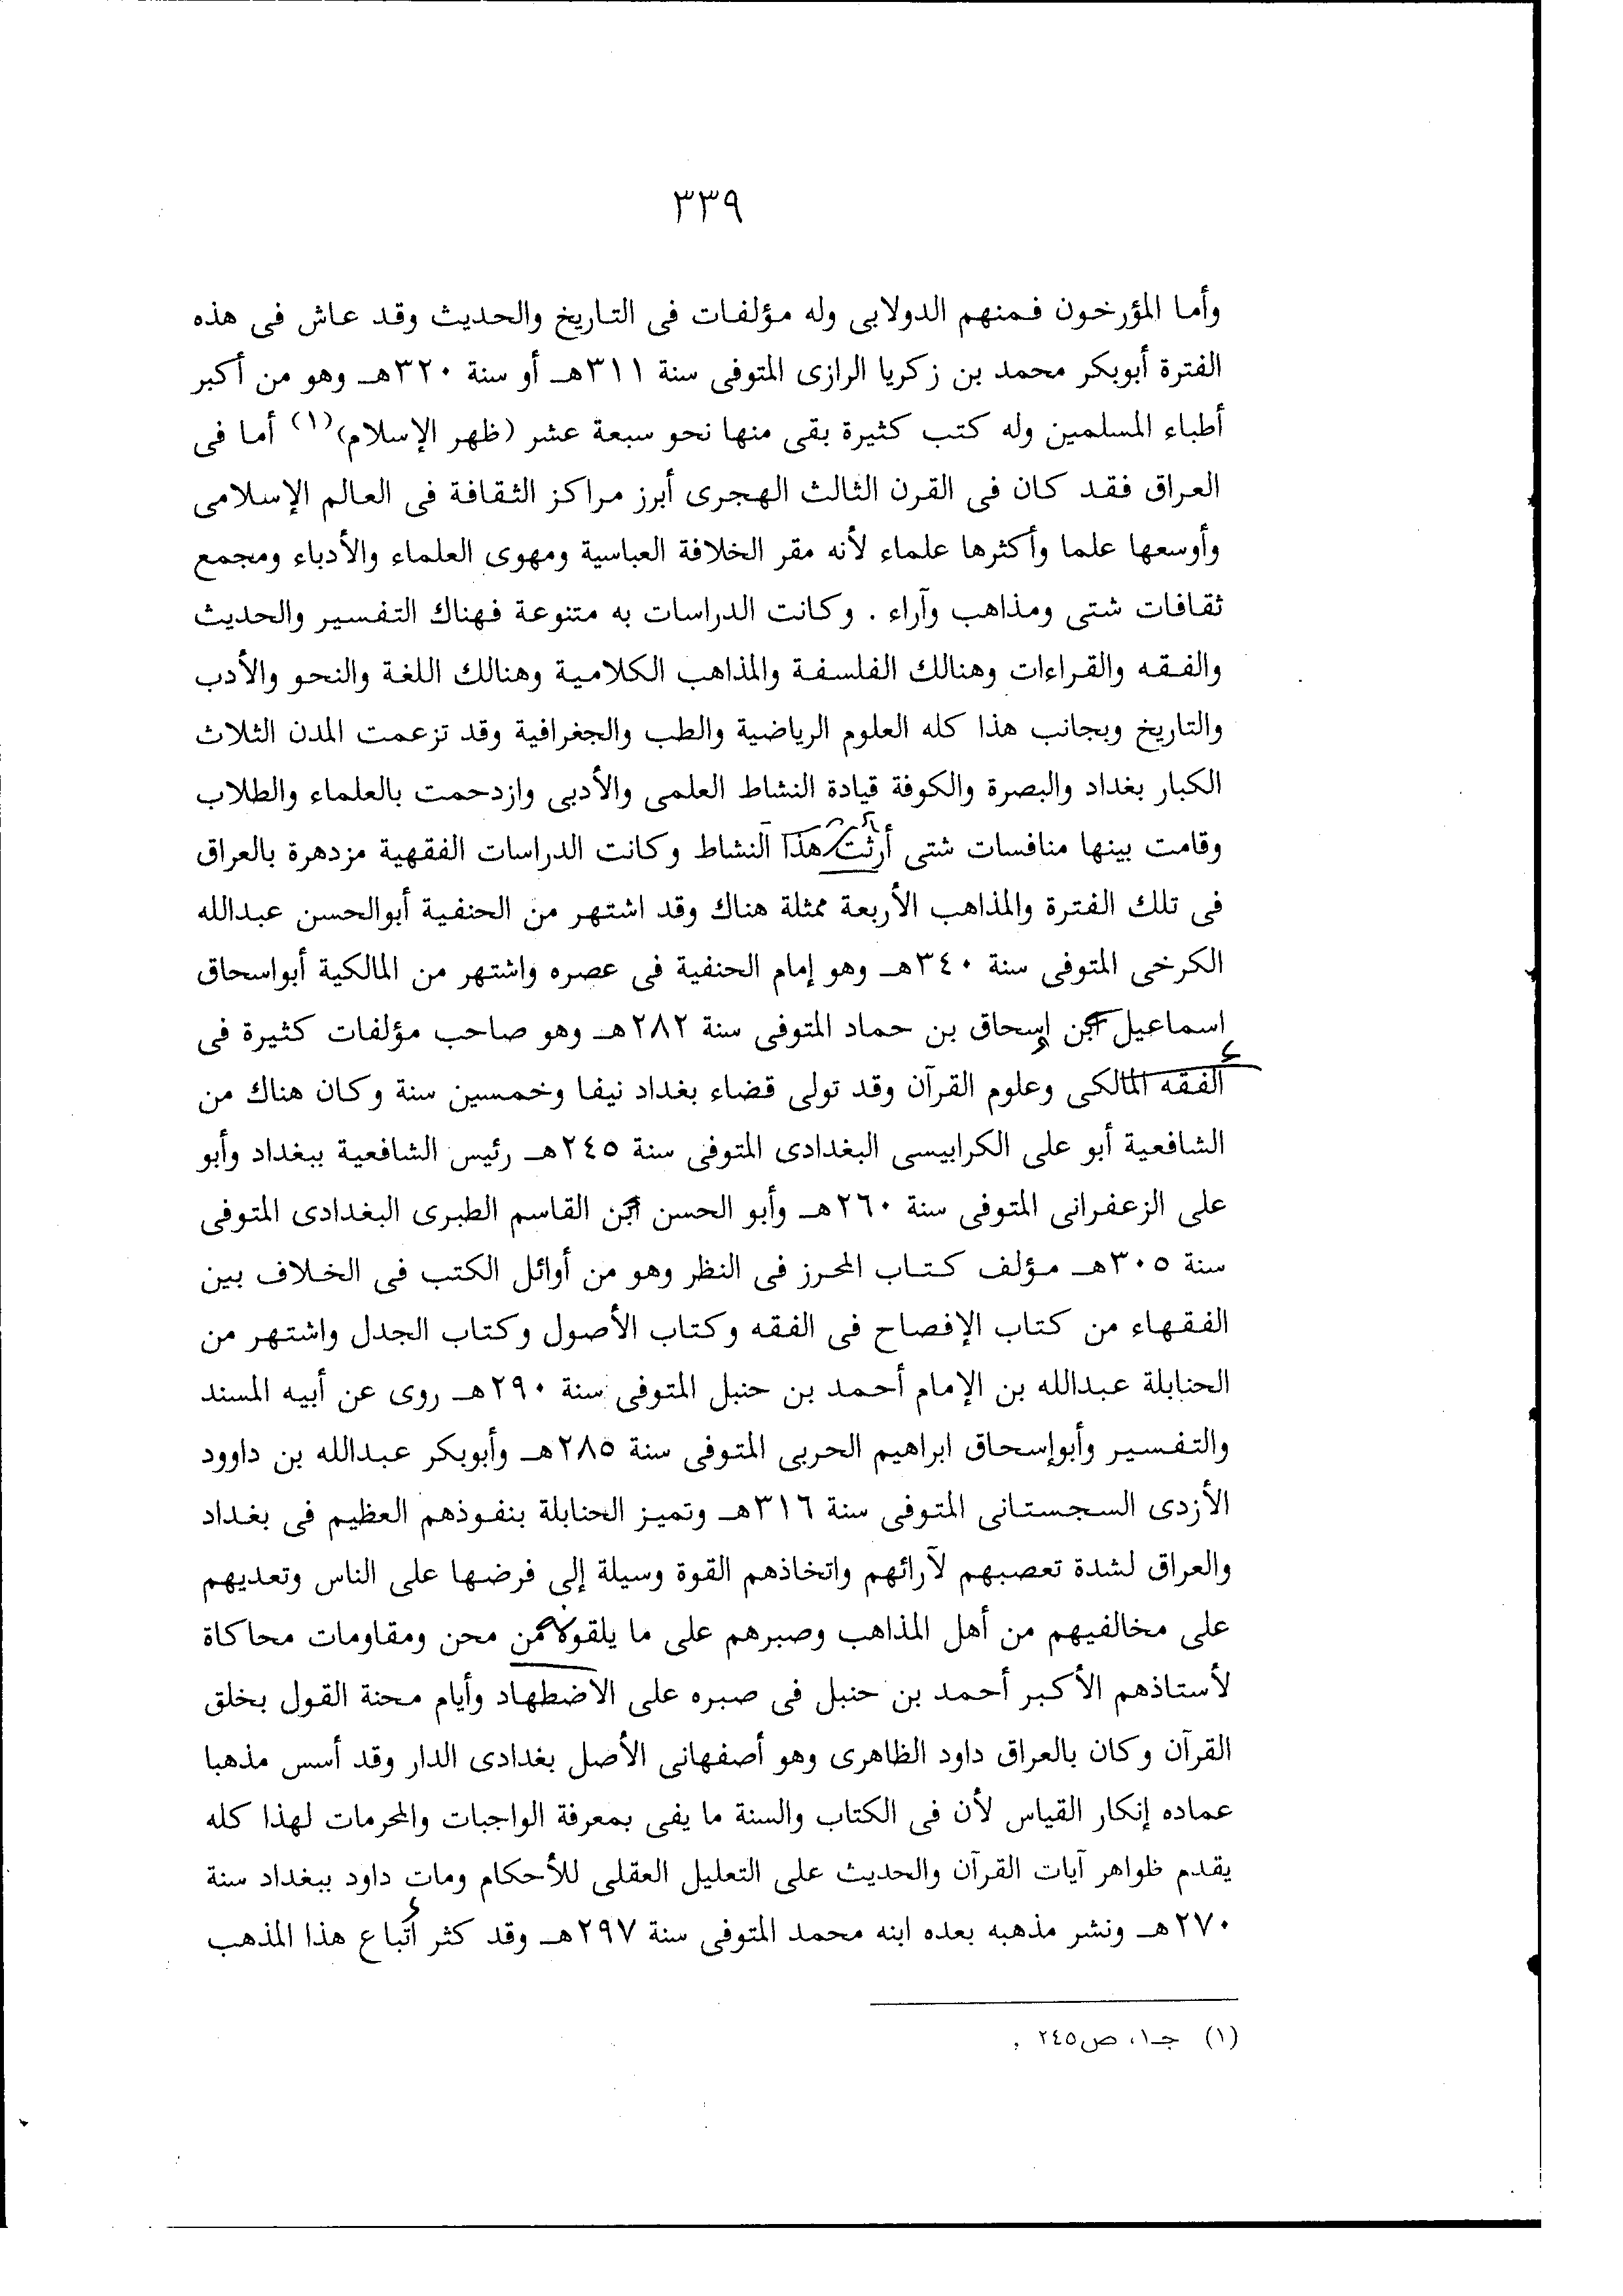 ٣٣٩
وأما المؤرخون فمنهم الدولابى وله مؤلفات فى التاريخ والحديث وقد عاش فى هذه
الفترة أبوبكر محمد بن زكريا الرازى المتوفى سنة ٣١١هـ أو سنة ٣٢٠هـ وهو من أكبر
أطباء المسلمين وله كتب كثيرة بقى منها نحو سبعة عشر (ظهر الإسلام)(١) أما فى
العراق فقد كان فى القرن الثالث الهجرى أبرز مراكز الثقافة فى العالم الإسلامى
وأوسعها علما وأكثرها علماء لأنه مقر الخلافة العباسية ومهوى العلماء والأدباء ومجمع
ثقافات شتى ومذاهب وآراء . وكانت الدراسات به متنوعة فهناك التفسير والحديث
والفقه والقراءات وهنالك الفلسفة والمذاهب الكلامية وهنالك اللغة والنحو والأدب
والتاريخ وبجانب هذا كله العلوم الرياضية والطب والجغرافية وقد تزعمت المدن الثلاث
الكبار بغداد والبصرة والكوفة قيادة النشاط العلمى والأدبى وازدحمت بالعلماء والطلاب
وقامت بينها منافسات شتى أرثت هذا النشاط وكانت الدراسات الفقهية مزدهرة بالعراق
فى تلك الفترة والمذاهب الأربعة ممثلة هناك وقد اشتهر من الحنفية أبوالحسن عبدالله
الكرخى المتوفى سنة ٣٤٠هـ وهو إمام الحنفية فى عصره واشتهر من المالكية أبواسحاق
اسماعيل بن إسحاق بن حماد المتوفى سنة ٢٨٢هـ وهو صاحب مؤلفات كثيرة فى
الفقه المالكى وعلوم القرآن وقد تولى قضاء بغداد نيفا وخمسين سنة وكان هناك من
الشافعية أبو على الكرابيسى البغدادى المتوفى سنة ٢٤٥هـ رئيس الشافعية ببغداد وأبو
على الزعفرانى المتوفى سنة ٢٦٠هـ وأبو الحسن بن القاسم الطبرى البغدادى المتوفى
سنة ٣٠٥هـ مؤلف كتاب المحرز فى النظر وهو من أوائل الكتب فى الخلاف بين
الفقهاء من كتاب الإفصاح فى الفقه وكتاب الأصول وكتاب الجدل واشتهر من
الحنابلة عبدالله بن الإمام أحمد بن حنبل المتوفى سنة ٢٩٠هـ روى عن أبيه المسند
والتفسير وأبوإسحاق ابراهيم الحربى المتوفى سنة ٢٨٥هـ وأبوبكر عبدالله بن داوود
الأزدى السجستانى المتوفى سنة ٣١٦هـ وتميز الحنابلة بنفوذهم العظيم فى بغداد
والعراق لشدة تعصبهم لآرائهم واتخاذهم القوة وسيلة إلى فرضها على الناس وتعديهم
على مخالفيهم من أهل المذاهب وصبرهم على ما يلقونه من محن ومقاومات محاكاة
لأستاذهم الأكبر أحمد بن حنبل فى صبره على الاضطهاد وأيام محنة القول بخلق
القرآن وكان بالعراق داود الظاهرى وهو أصفهانى الأصل بغدادى الدار وقد أسس مذهبا
عماده إنكار القياس لأن فى الكتاب والسنة ما يفى بمعرفة الواجبات والمحرمات لهذا كله
يقدم ظواهر آيات القرآن والحديث على التعليل العقلى للأحكام ومات داود ببغداد سنة
٢٧٠هـ ونشر مذهبه بعده ابنه محمد المتوفى سنة ٢٩٧هـ وقد كثر أتباع هذا المذهب
(١) جـ١، ص٢٤٥ .